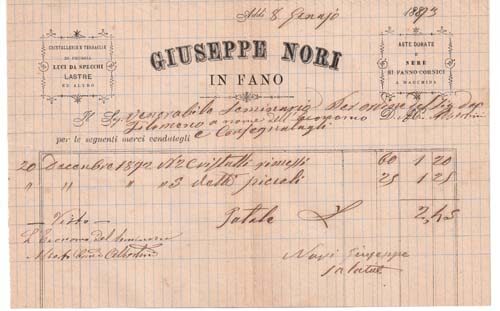 Addì 8 Genajo 1893
CRISTALLERIE E TERRAGLIE
DI PERUGIA
LUCI DA SPECCHI
LASTRE
ED ALTRO
GIUSEPPE NORI
IN FANO
ASTE DORATE
E
NERE
SI FANNO CORNICI
A MACCHINA
Il Sig. Venerabile Seminario
a nome del
per le seguenti merci vendutegli e Consegnatagli
20 Decembre 1892 N2 Cristalli rimessi 60 1 20
" " " " 5 detti piccoli 25 1 25
Visto Totale L 2,45
L'Economo del Seminario
Nori Giuseppe